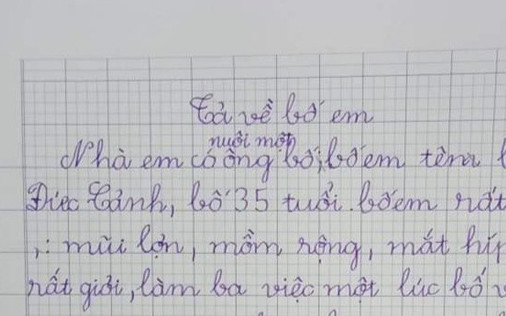 Tả về bố em
nuôi một
Nhà em có ông bố, bố em tên
Đức Cảnh, bố 35 tuổi. bố em rất
,: mũi lợn, mồm rộng, mắt híp
rất giỏi, làm ba việc một lúc bố